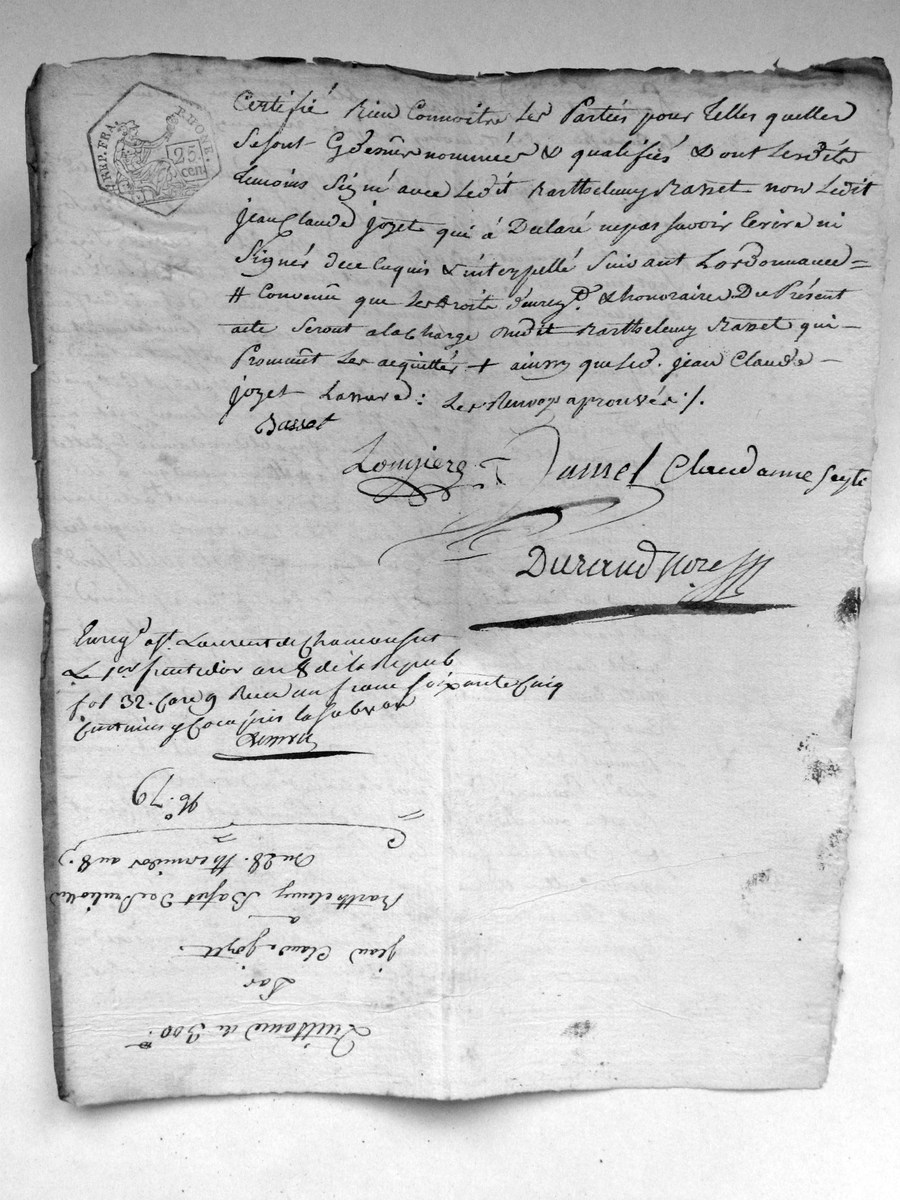 REP. FRA. RHONE.
25 cen
Certifié Bien Connoitre Les Parties pour Telles quelles
Se sont Cy dessus nommées & qualifiés & ont Lesdits
temoins Signé avec Ledit Barthelemy Basset non Ledit
jean Claude joyet qui à Declaré ne pas Savoir Ecrire ni
Signer de ce Enquis & interpellé Suivant Lordonnance =
# Convenû que Les droits d'enreg.t & honoraires Du Présent
acte Seront a la Charge Dudit Barthelemy Basset qui -
Promient Les acquitter + ainsy que led. jean Claude -
joyet : Les Renvoys aprouvés ./.
Basset
Claud anne
Durand No.re
Enreg.é a St. Laurent de Chamousset
Le 1er fructidor an 8 de la Repub
fol 32. Care 9 Recu un franc soixante Cinq
Centimes y Compris la Subvon
n.o 79
Du 28. thermidor an 8.
Barthelemy Basset
a
jean Claude joyet
Par
Quittance de 300